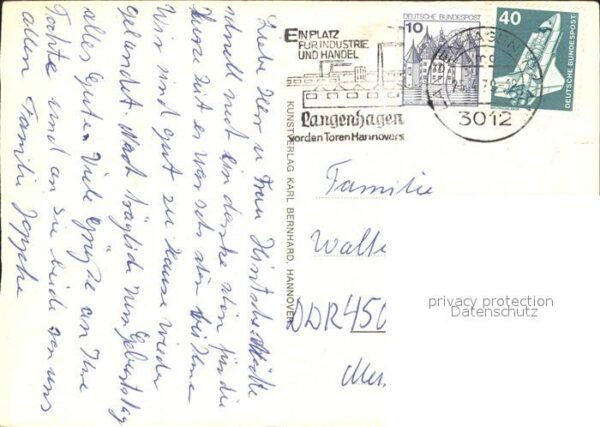 Liebe Herr u Frau
schnell noch ein danke schön für die
kurze Zeit es war sehr schön bei Ihnen
Wir sind gut zu Hause wieder
gelandet Nachträglich zum Geburtstag
alles Guten Viele Grüße an Ihre
Tochter und an sie beide von uns
allen Familie
KUNSTVERLAG KARL BERNHARD, HANNOVER
EIN PLATZ
FÜR INDUSTRIE
UND HANDEL
Langenhagen
vor den Toren Hannovers
10
DEUTSCHE BUNDESPOST
40
DEUTSCHE BUNDESPOST
3012
Familie
Walte
DDR 450
privacy protection
Datenschutz